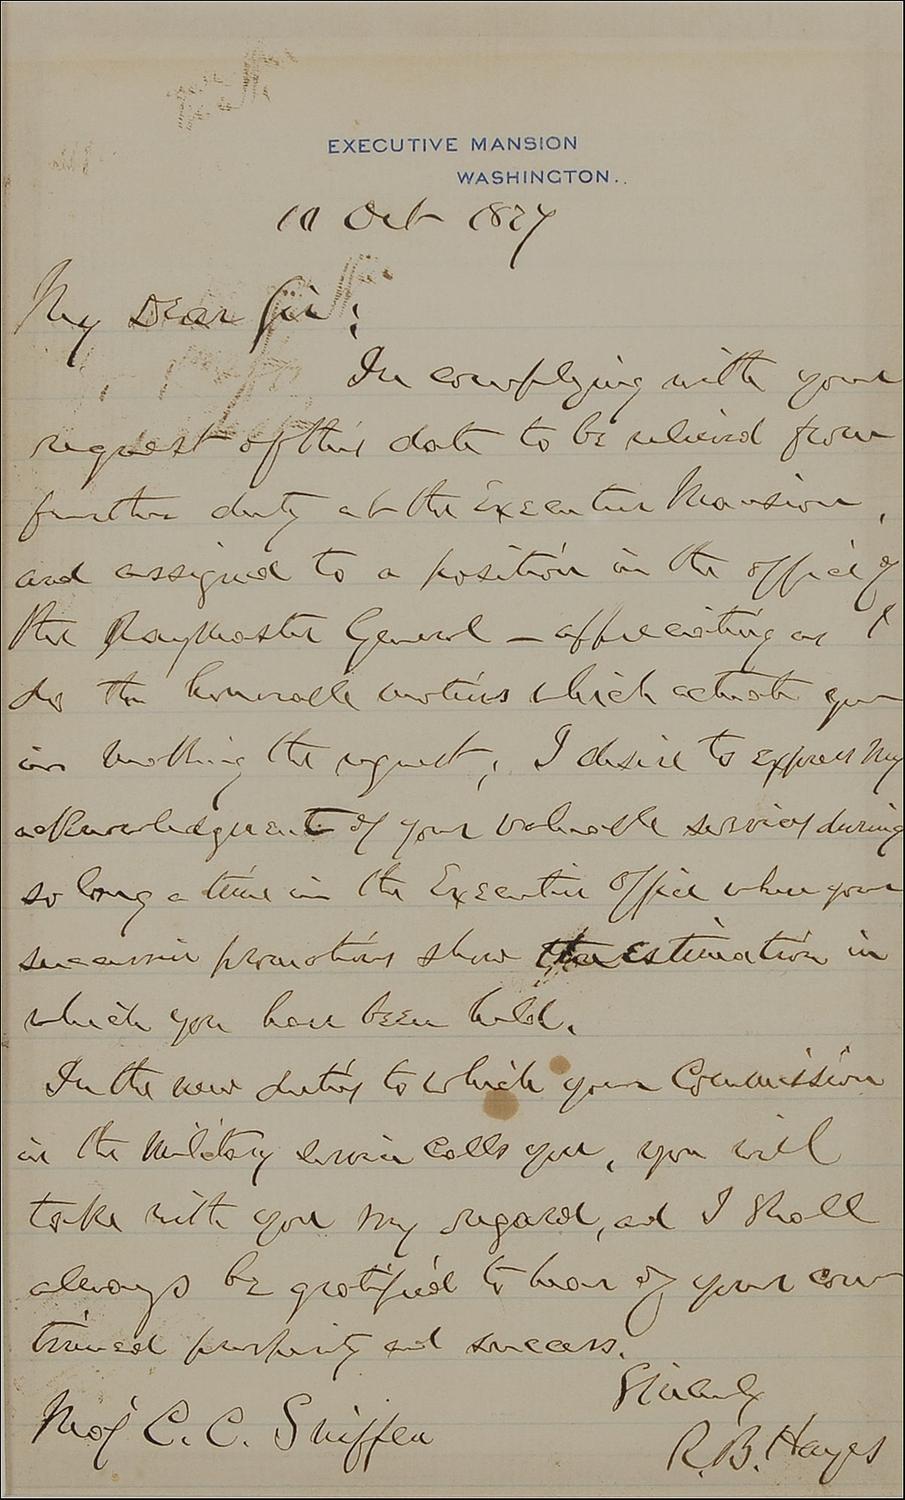 EXECUTIVE MANSION
WASHINGTON..
Oct 1877
My Dear Sir:
In complying with your
request of this date to be relieved from
further duty at the Executive Mansion,
and assigned to a position in the office of
the Paymaster General — appreciating as I
do the honorable motives which actuate you
in making the request; I desire to express my
acknowledgment of your valuable services during
so long a time in the Executive Office where your
successive promotions show the estimation in
which you have been held.
In the new duties to which your Commission
in the Military service calls you, you will
take with you my regard, and I shall
always be gratified to hear of your con-
tinued prosperity and success.
Sincerely
Maj C. C. Sniffen
R. B. Hayes